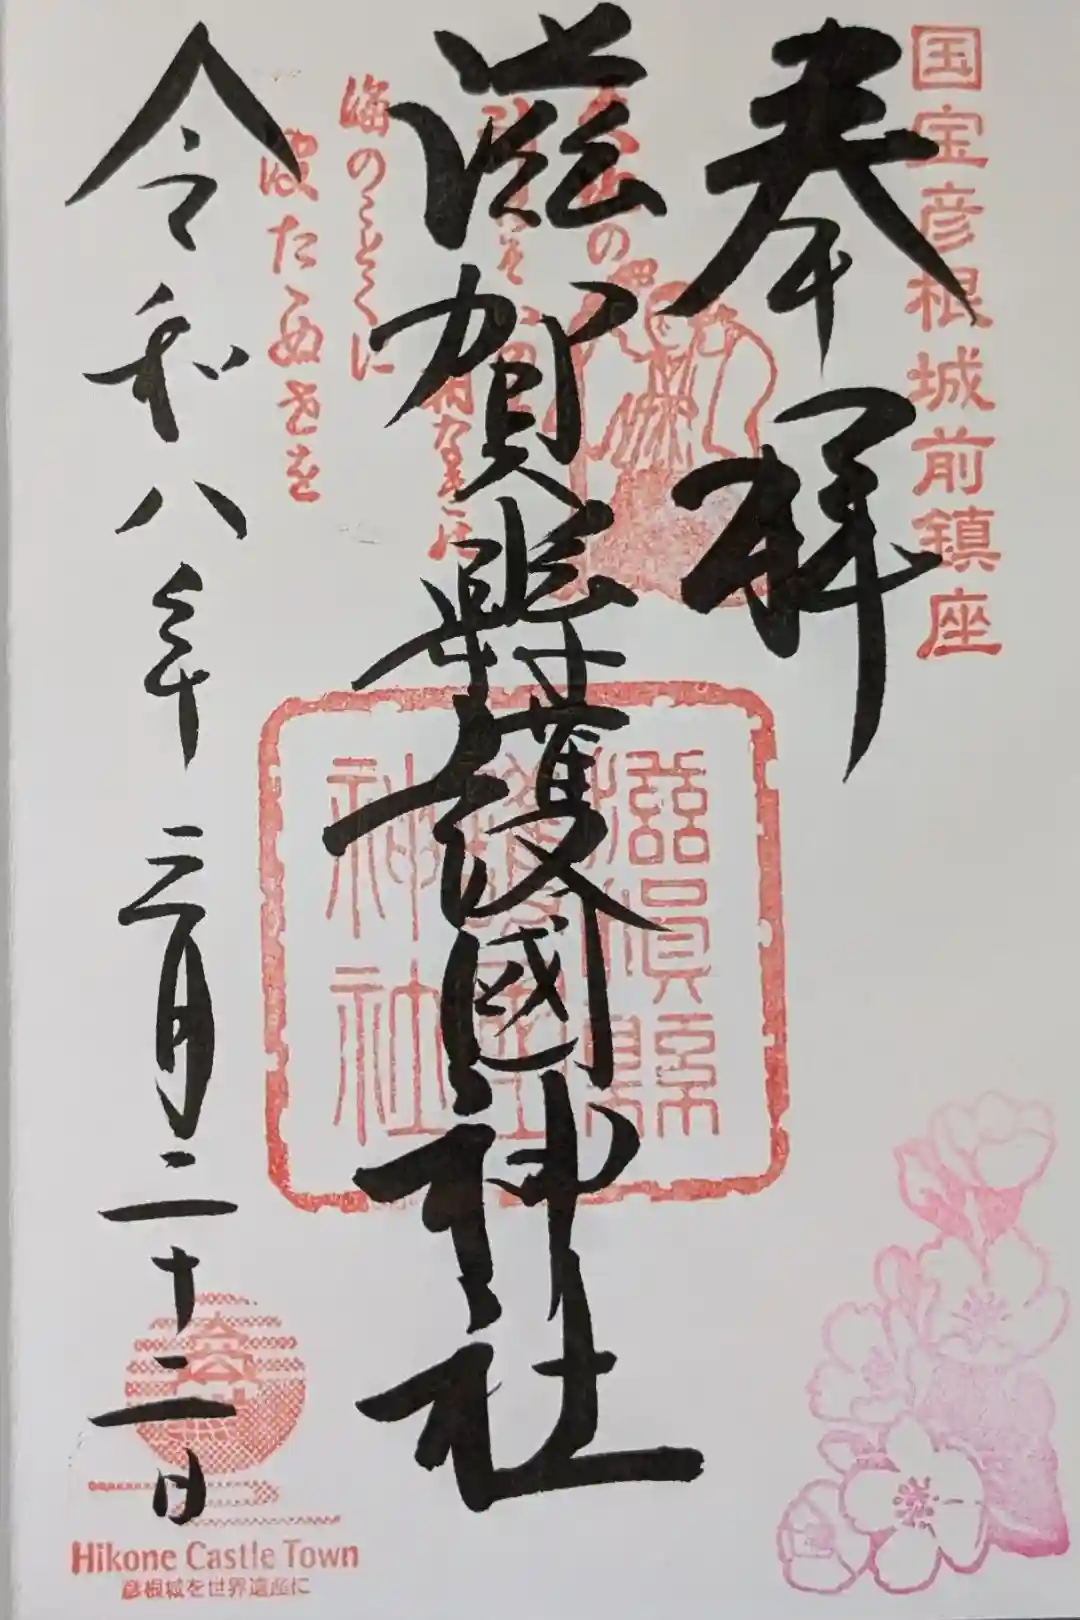 国宝彦根城前鎮座
奉拝
滋賀縣護國神社
滋賀縣
護國
神社
海のことくに
波たゝぬせを
令和八年三月二十二日
Hikone Castle Town
彦根城を世界遺産に